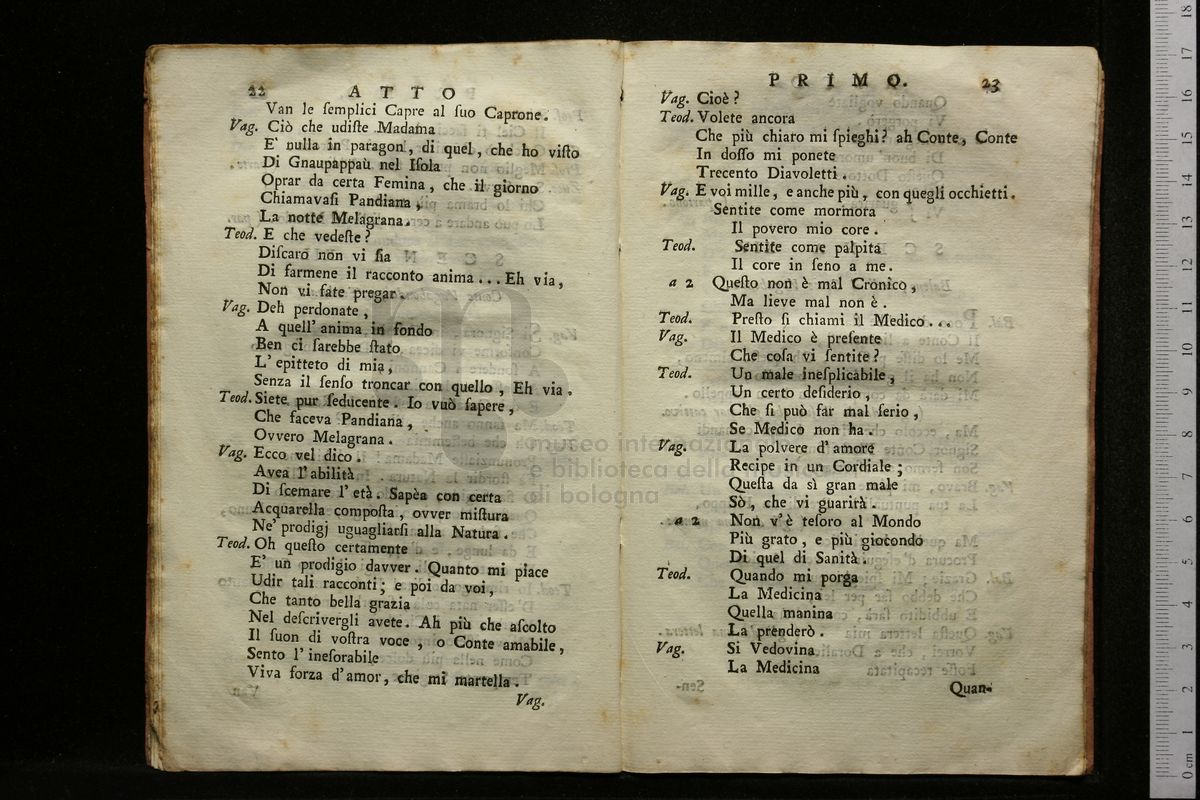 22 ATTO
Van le ſemplici Capre al ſuo Caprone.
Vag. Ciò che udiſte Madama
E' nulla in paragon, di quel, che ho viſto
Di Gnaupappaù nel Iſola
Oprar da certa Femina, che il giorno
Chiamavaſi Pandiana,
La notte Melagrana.
Teod. E che vedeſte?
Diſcaro non vi ſia
Di farmene il racconto anima... Eh via,
Non vi fate pregar.
Vag. Deh perdonate,
A quell' anima in fondo
Ben ci ſarebbe ſtato
L' epitteto di mia,
Senza il ſenſo troncar con quello, Eh via.
Teod. Siete pur ſeducente. Io vuò ſapere,
Che faceva Pandiana,
Ovvero Melagrana.
Vag. Ecco vel dico.
Avea l'abilità
Di ſcemare l' età. Sapèa con certa
Acquarella compoſta, ovver miſtura
Ne' prodigj uguagliarſi alla Natura.
Teod. Oh queſto certamente
E' un prodigio davver. Quanto mi piace
Udir tali racconti; e poi da voi,
Che tanto bella grazia
Nel deſcrivergli avete. Ah più che aſcolto
Il ſuon di voſtra voce, o Conte amabile,
Sento l' ineſorabile
Viva forza d'amor, che mi martella.
Vag.
PRIMO. 23
Vag. Cioè?
Teod. Volete ancora
Che più chiaro mi ſpieghi? ah Conte, Conte
In doſſo mi ponete
Trecento Diavoletti.
Vag. E voi mille, e anche più, con quegli occhietti.
Sentite come mormora
Il povero mio core.
Teod. Sentite come palpita
Il core in ſeno a me.
a 2 Queſto non è mal Cronico,
Ma lieve mal non è.
Teod. Preſto ſi chiami il Medico...
Vag. Il Medico è preſente
Che coſa vi ſentite?
Teod. Un male ineſplicabile,
Un certo deſiderio,
Che ſi può far mal ſerio,
Se Medico non ha.
Vag. La polvere d'amore
Recipe in un Cordiale;
Queſta da sì gran male
Sò, che vi guarirà.
a 2 Non v'è teſoro al Mondo
Più grato, e più giocondo
Di quel di Sanità.
Teod. Quando mi porga
La Medicina
Quella manina
La prenderò.
Vag. Si Vedovina
La Medicina
Quan-
museo internazionale
e biblioteca della musica
di bologna